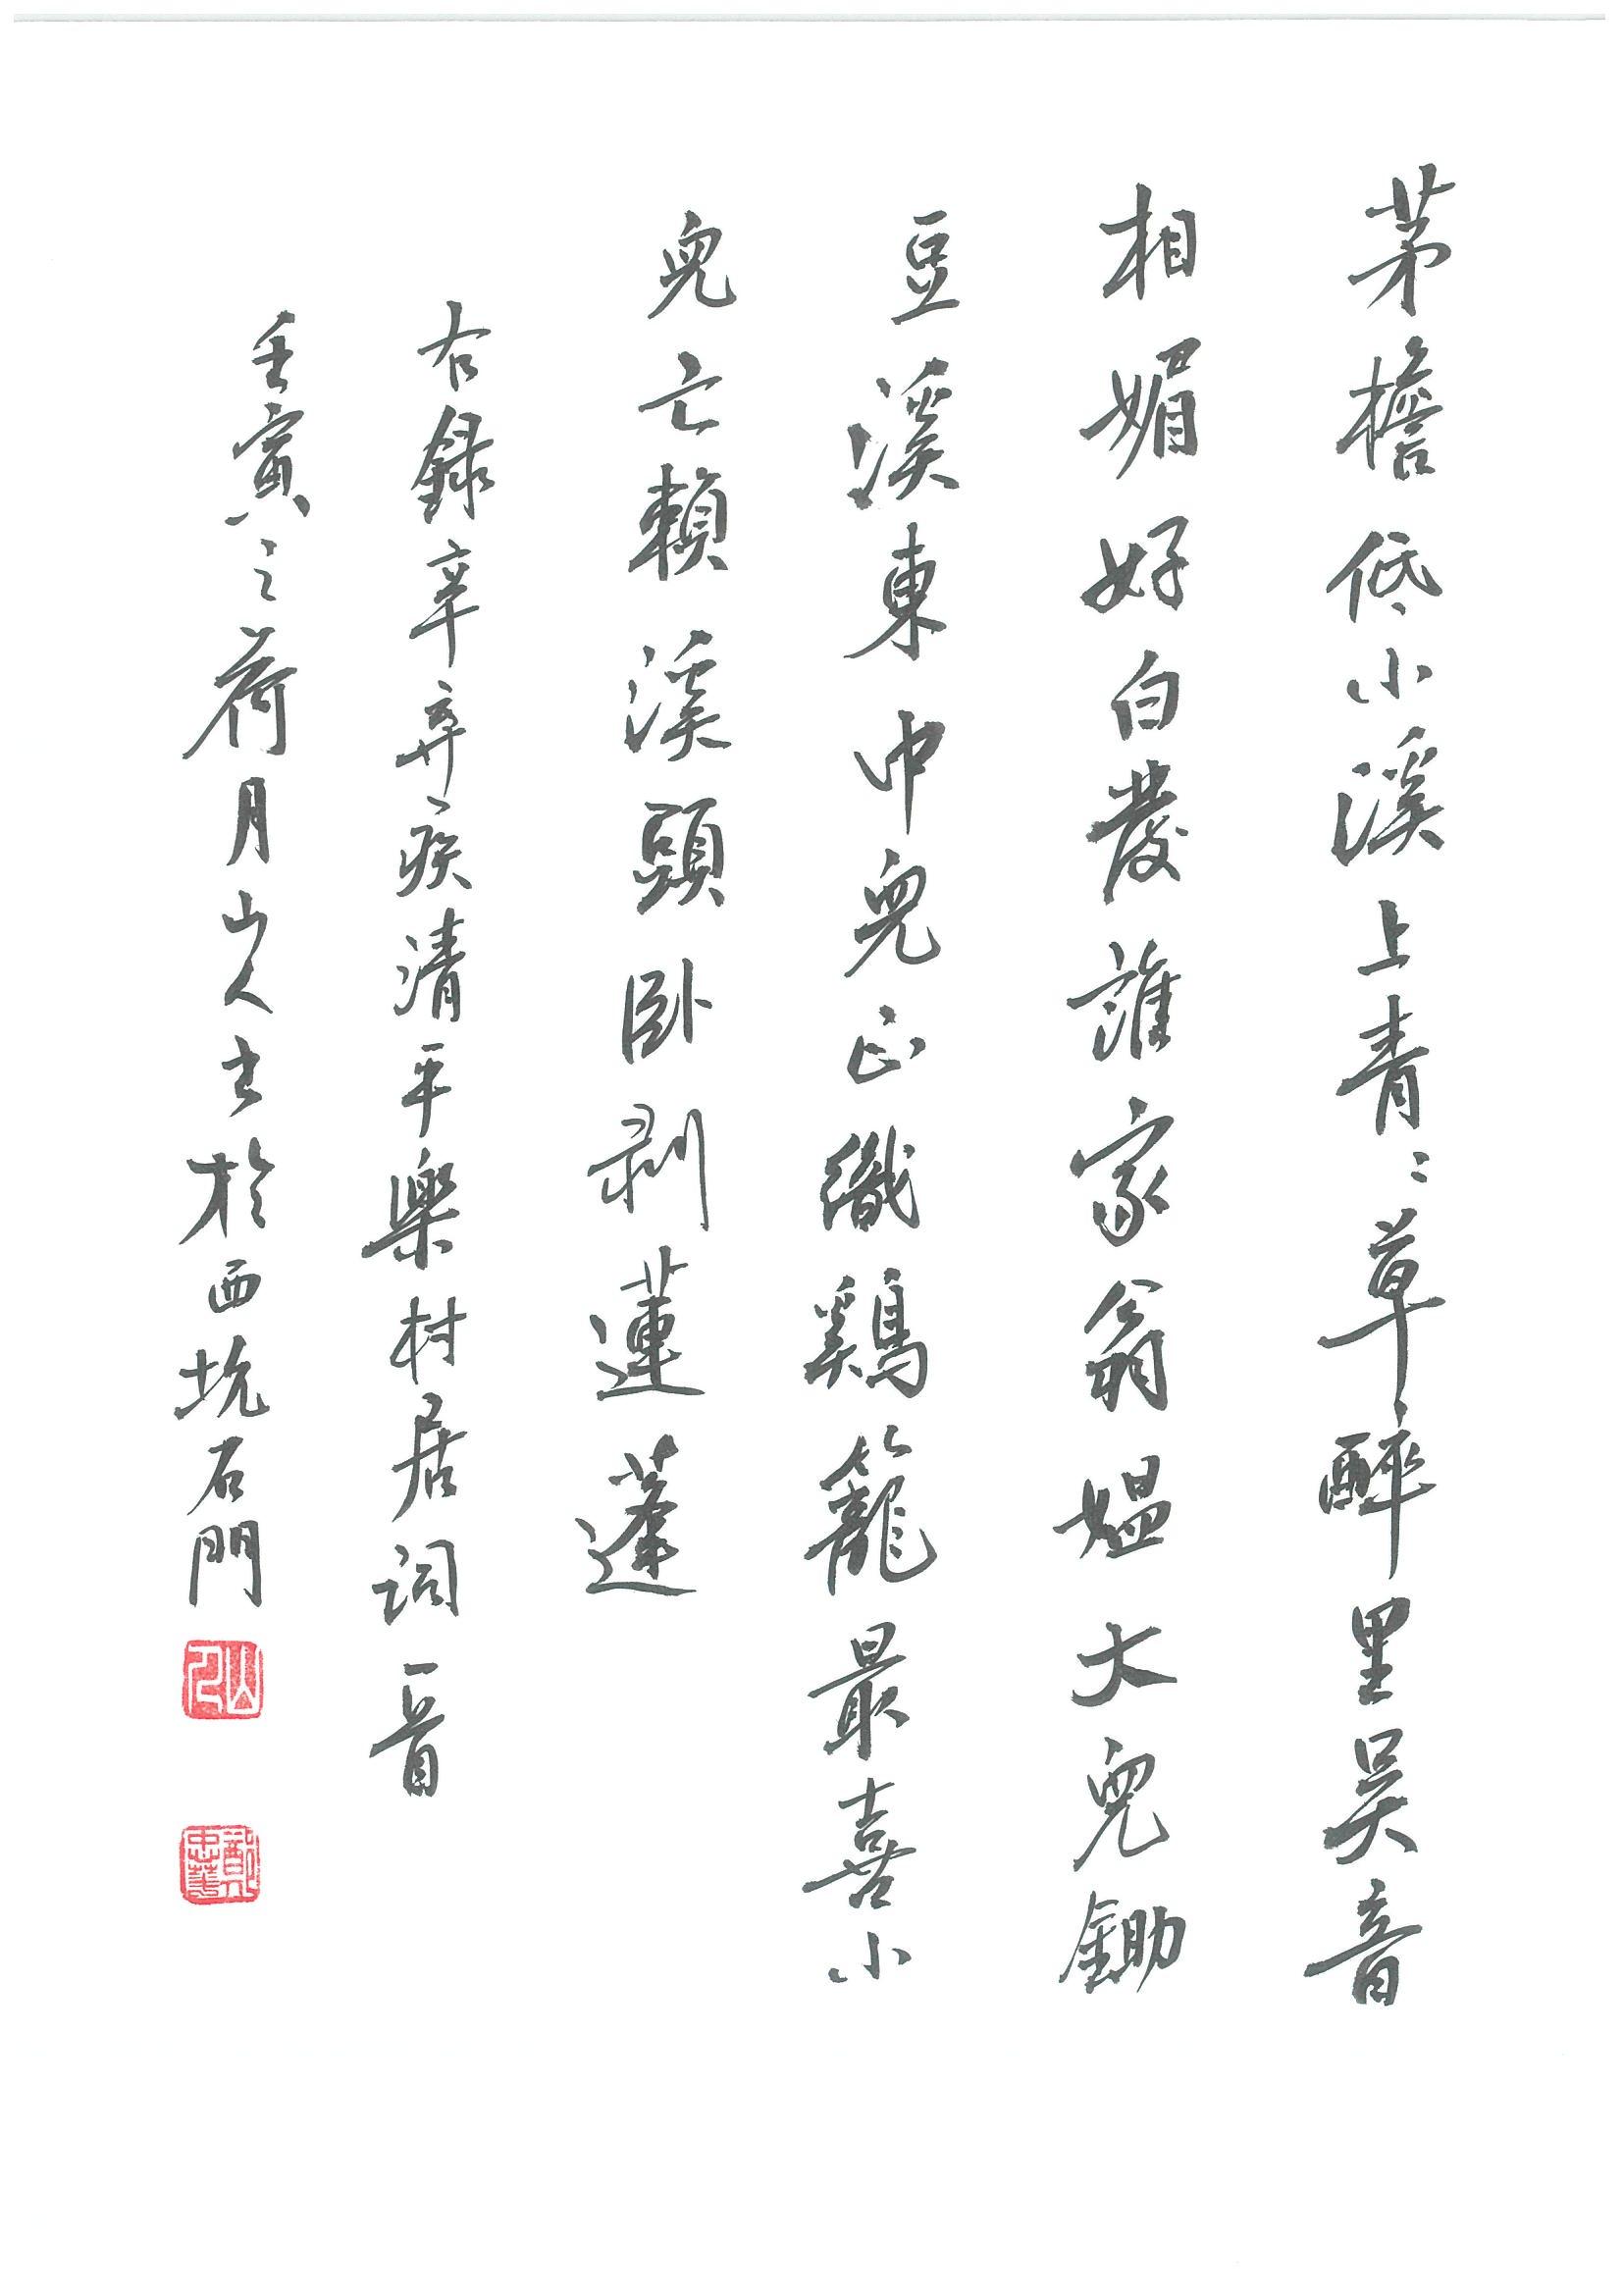 茅檐低小溪上青〻草醉里吴音
相媚好白發誰家翁媪大兒鋤
豆溪東中兒正織鷄籠最喜小
兒亡賴溪頭臥剥蓮蓬
右録辛弃疾清平樂村居詞一首
壬寅之荷月山人书於西坑石門
山人